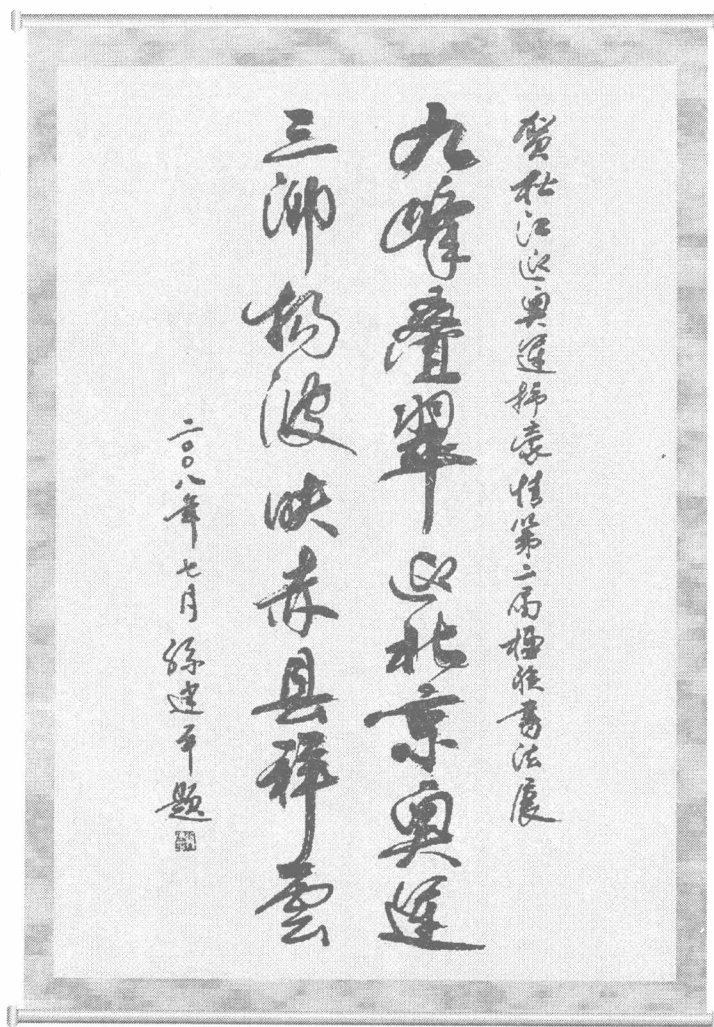 贺松江迎奥运抒豪情第二届楹联书法展
九峰叠翠迎北京奥运
三泖扬波映赤县祥云
二〇〇八年七月 孙建平题